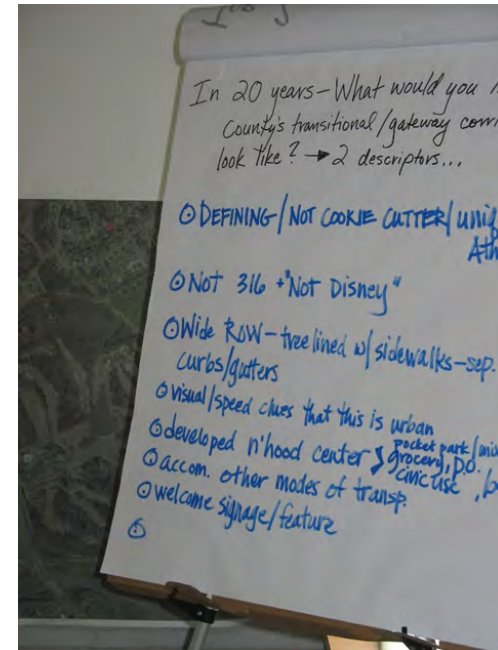 In 20 years - What would you
County's transitional/gateway
look like? → 2 descriptors...
⊙ DEFINING/NOT COOKIE CUTTER/
⊙ Not 316 + "Not Disney"
⊙ Wide ROW - tree lined w/ sidewalks - sep.
curbs/gutters
⊙ visual/speed clues that this is urban
⊙ developed n'hood center } pocket park/
grocery, p.o.
civic use,
⊙ accom. other modes of transp.
⊙ welcome signage/feature
⊙